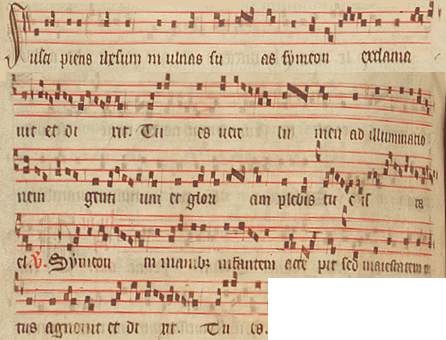 Suscipiens ihesum in ulnas su as symeon exclama
uit et di xit. Tu es uere lu men ad illuminatio
nem genti um et glori am plebis tu e is ra
el. V. Symeon in manibus infantem acce pit sed maiestatem in
tus agnouit et di xit. Tu es.